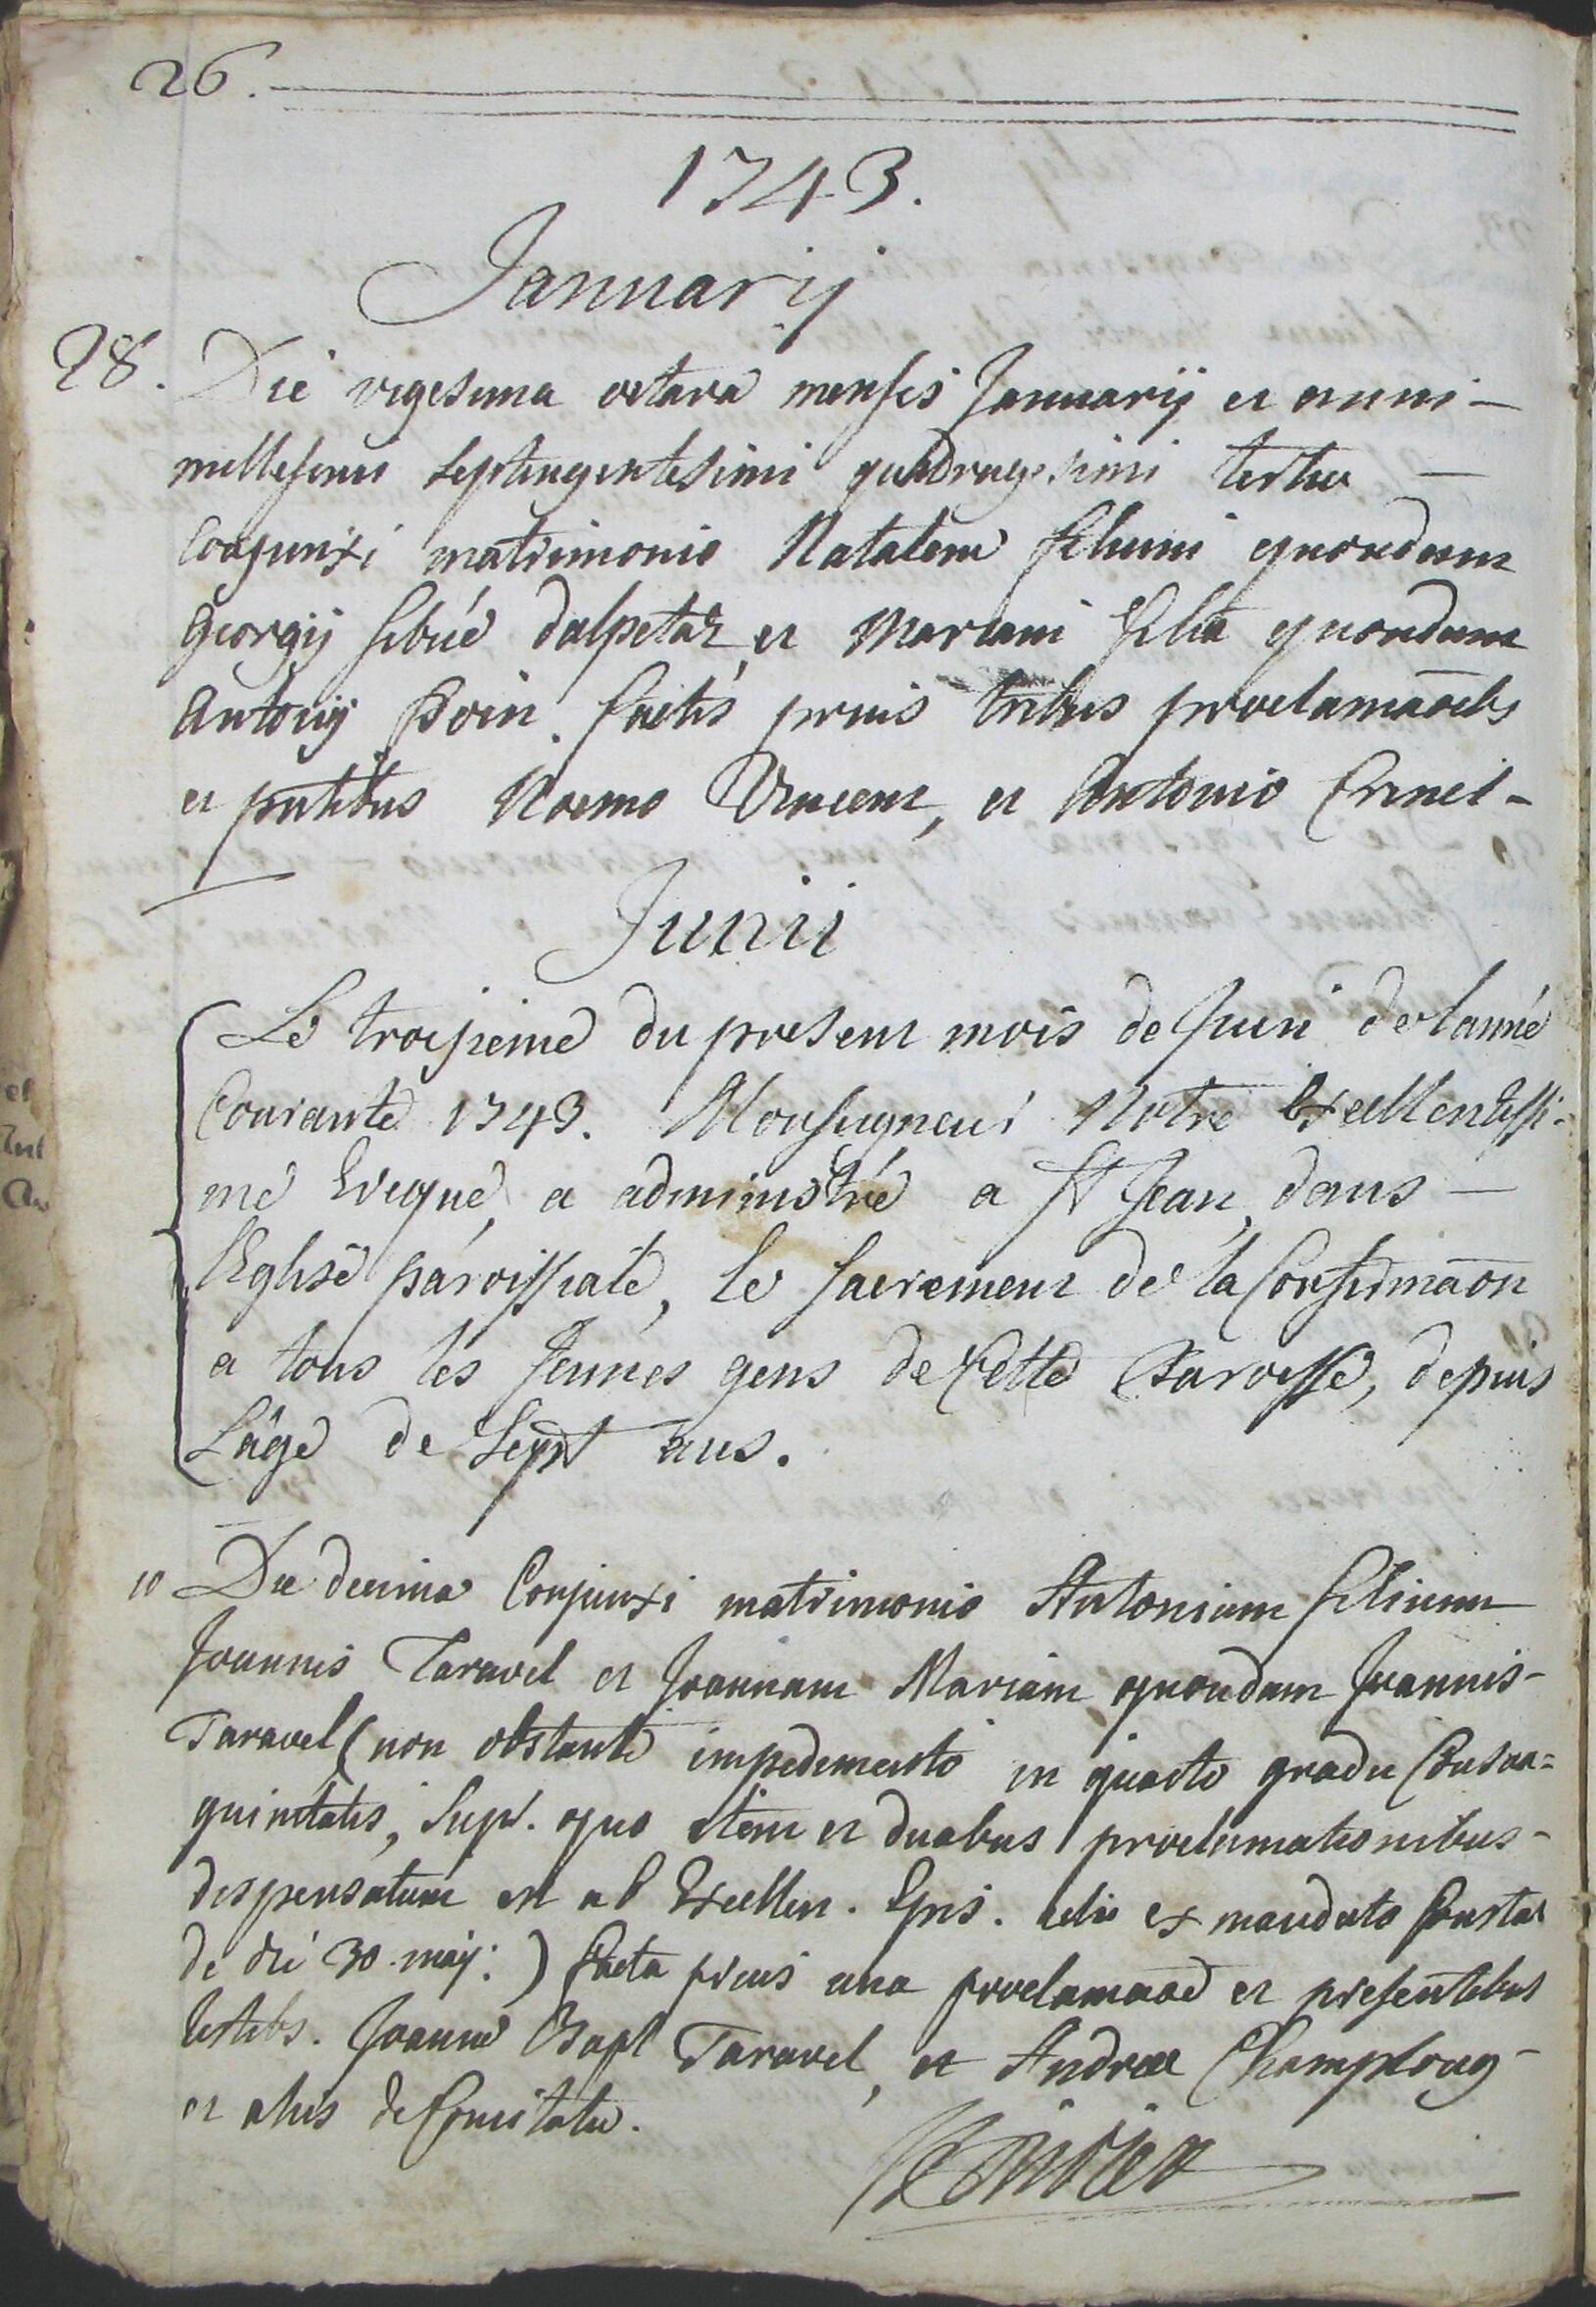 26.
1743.
Januarij
28. Die vigesima octava mensis Januarij et anni -
millesimi septengentesimi quadragesimi tertii -
Conjunxi matrimonio Natalem filium quondam
Georgij sibüé dalpetaz, et Mariam filia quondam
Antonij Boin. factis prius tribus proclamaōebs
et pntibus Noemo Vincent, et Antonio
Junii
Le troisieme du present mois de Juin de lanné
Courante 1743. Monseigneur Notre Excellentissi-
me Eveque, a administré a St Jean, dans -
l'Eglise paroissiale, le sacrement de la Confirmaōn
a tous les Jeunes gens de Cette Paroisse, depuis
L'âge de Sept ans.
10 Die decima Conjunxi matrimonio Antonium filium
Joannis Taravel et Joannam Mariam quondam Joannis -
Taravel (non obstante impedimento in quarto gradu Consan=
guinitatis, Sup. quo item et duabus proclamationibus -
dispensatum est ab Excellen. Epis. ex mandato Constat
de die 30. maij.) facta prius una proclamaōe et presentibus
testibs. Joanne Bapt Taravel, et Andrea Champlong -
et aliis de Comitatu.